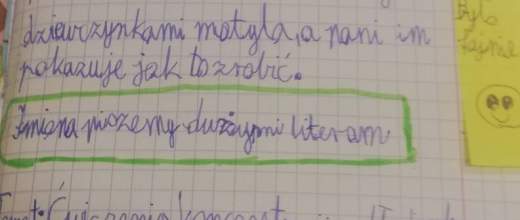 dziewczynkami motyla, a pani im
pokazuje jak to zrobić.
Imiona piszemy dużymi literam
Było
fajnie
Temat: Ćwiczenia